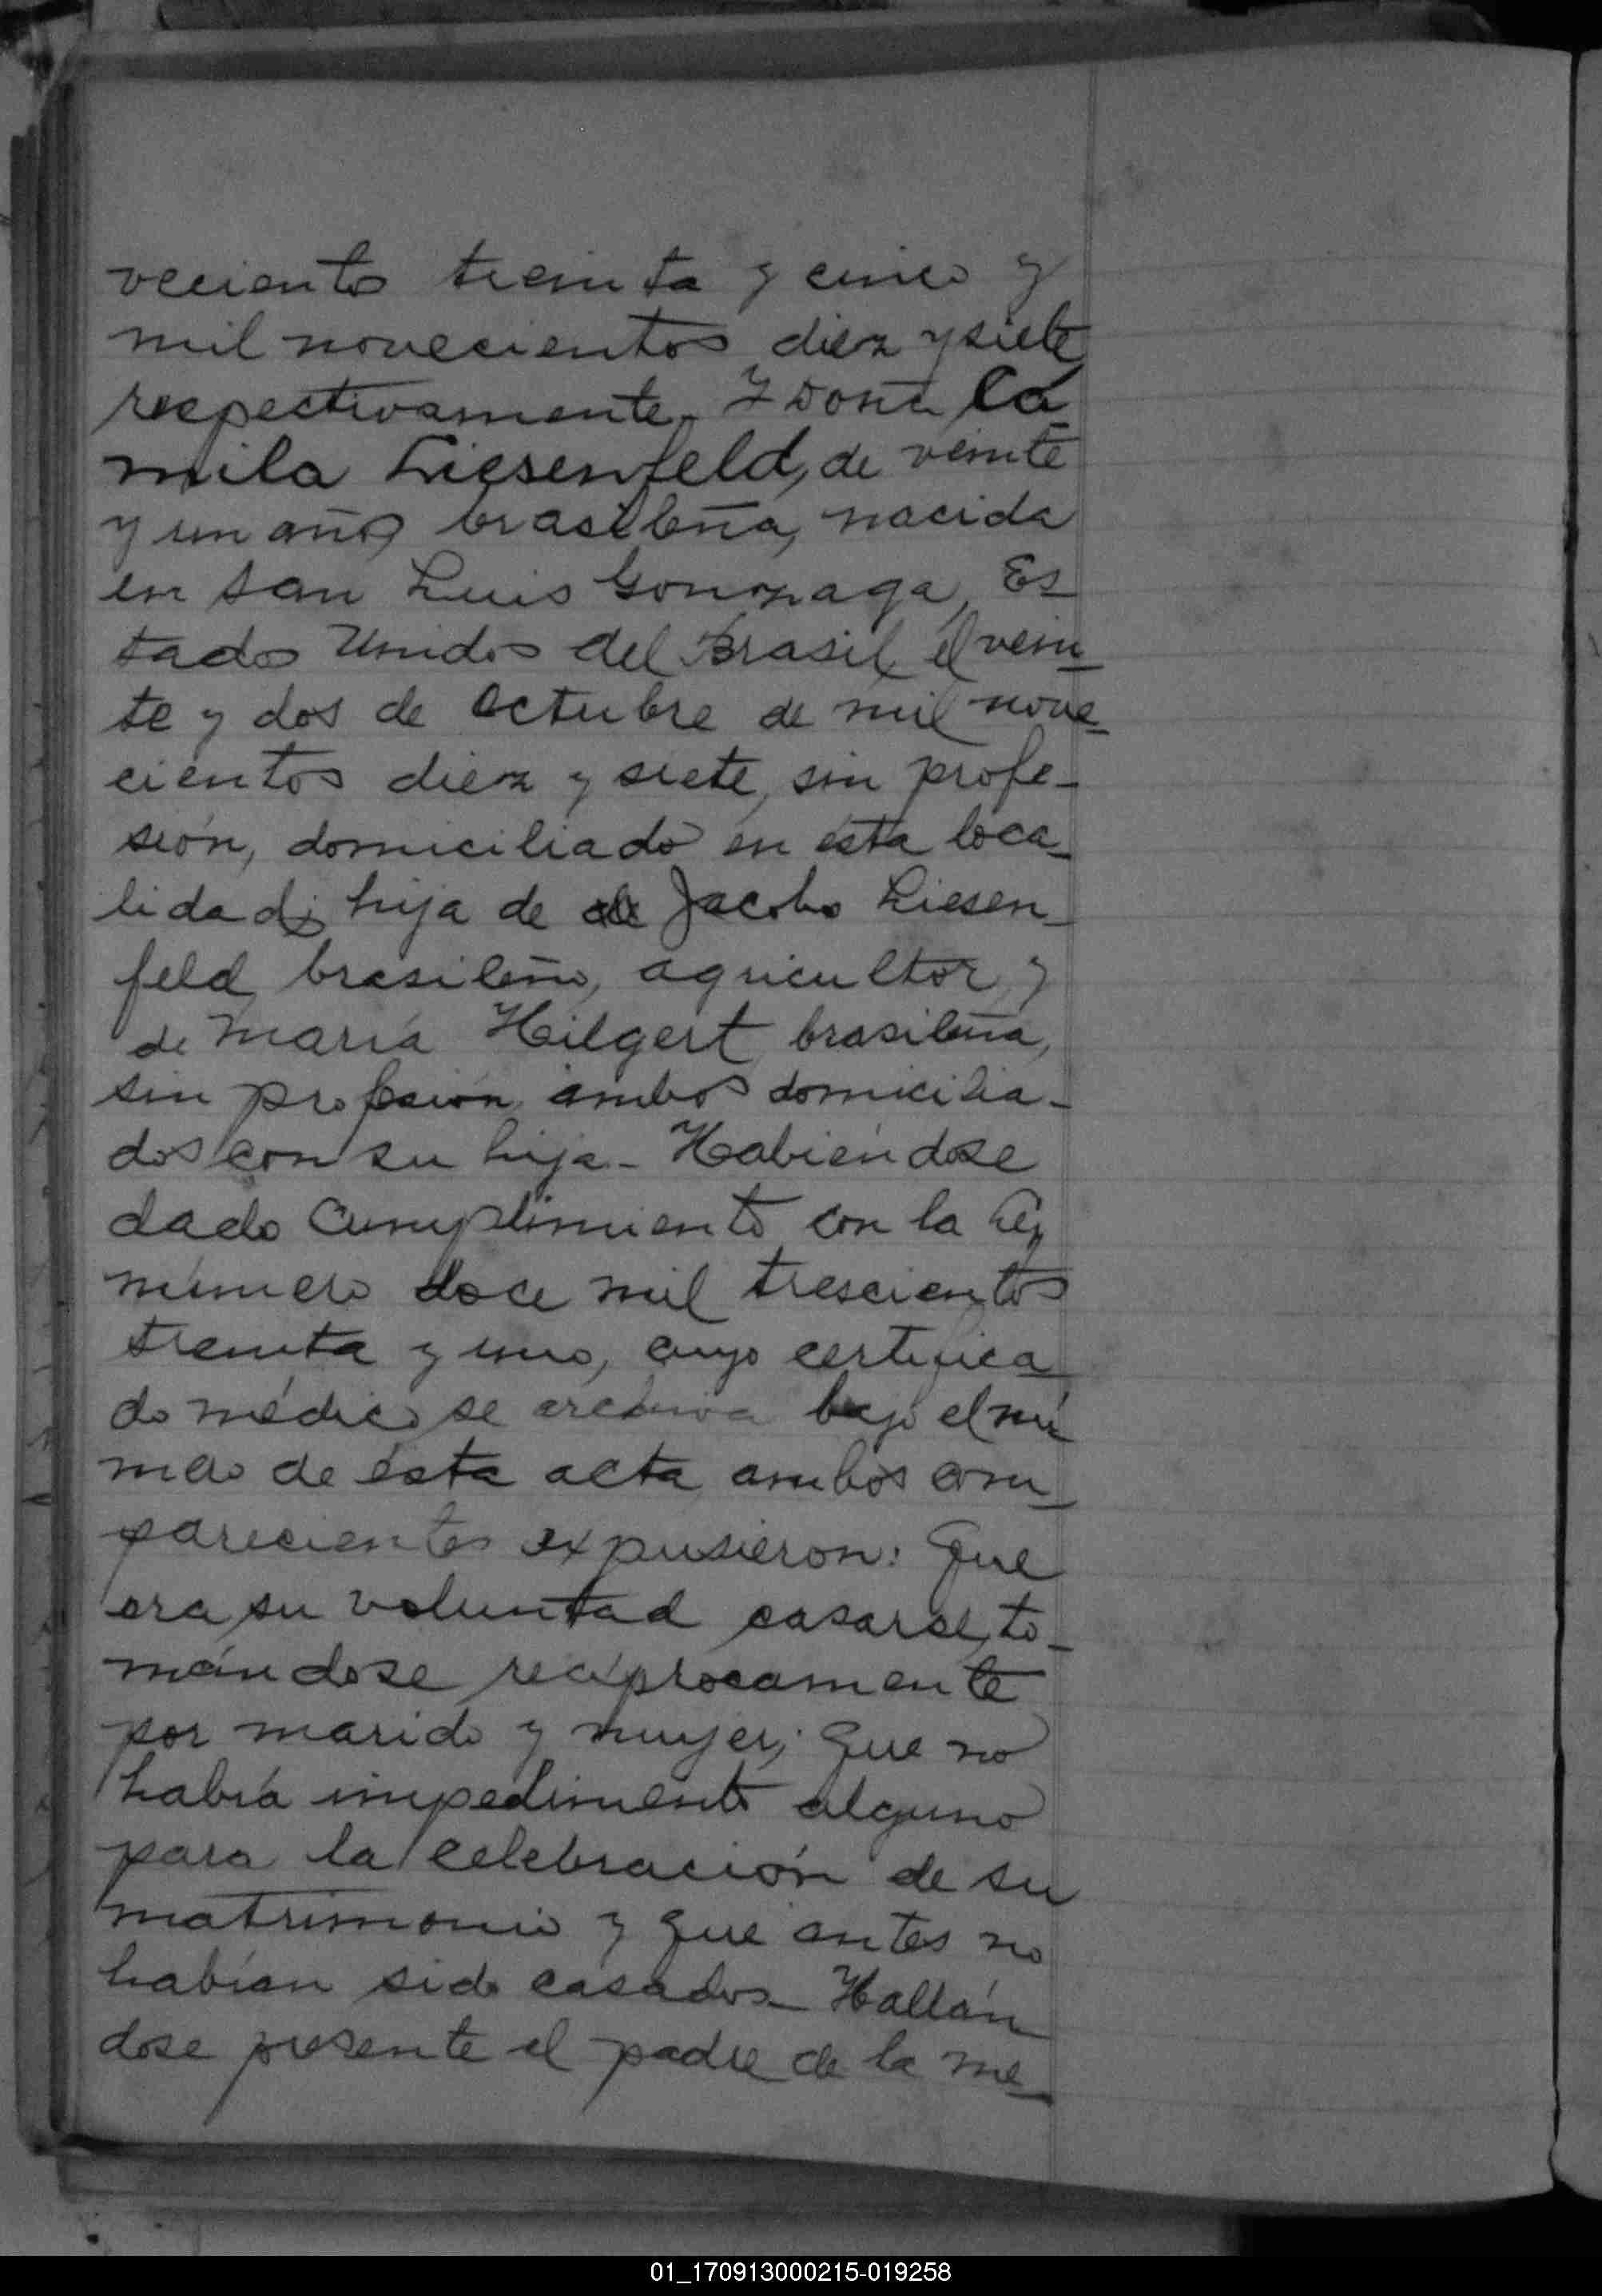 vecientos treinta y cinco y
mil novecientos diez y siete
respectivamente. Y Doña Ca
mila Liesenfeld, de veinte
y un años brasileña, nacida
en San Luis Gonzaga, Es
tados Unidos del Brasil el vein
te y dos de Octubre de mil nove
cientos diez y siete, sin profe-
sión, domiciliado en ésta loca
lidad; hija de de Jacobo Liesen
feld, brasileño, agricultor, y
de María Hilgert, brasileña,
sin profesión, ambos domicilia-
dos con su hija.- Habiéndose
dado cumplimiento con la Ley
número doce mil trescientos
treinta y uno, cuyo certifica
do médico se archiva bajo el nú
mero de ésta acta ambos com
parecientes expusieron: Que
era su voluntad casarse, to-
mándose recíprocamente
por marido y mujer; Que no
había impedimento alguno
para la celebración de su
matrimonio y que antes no
habían sido casados.- Hallán
dose presente el padre de la me
01_170913000215-019258